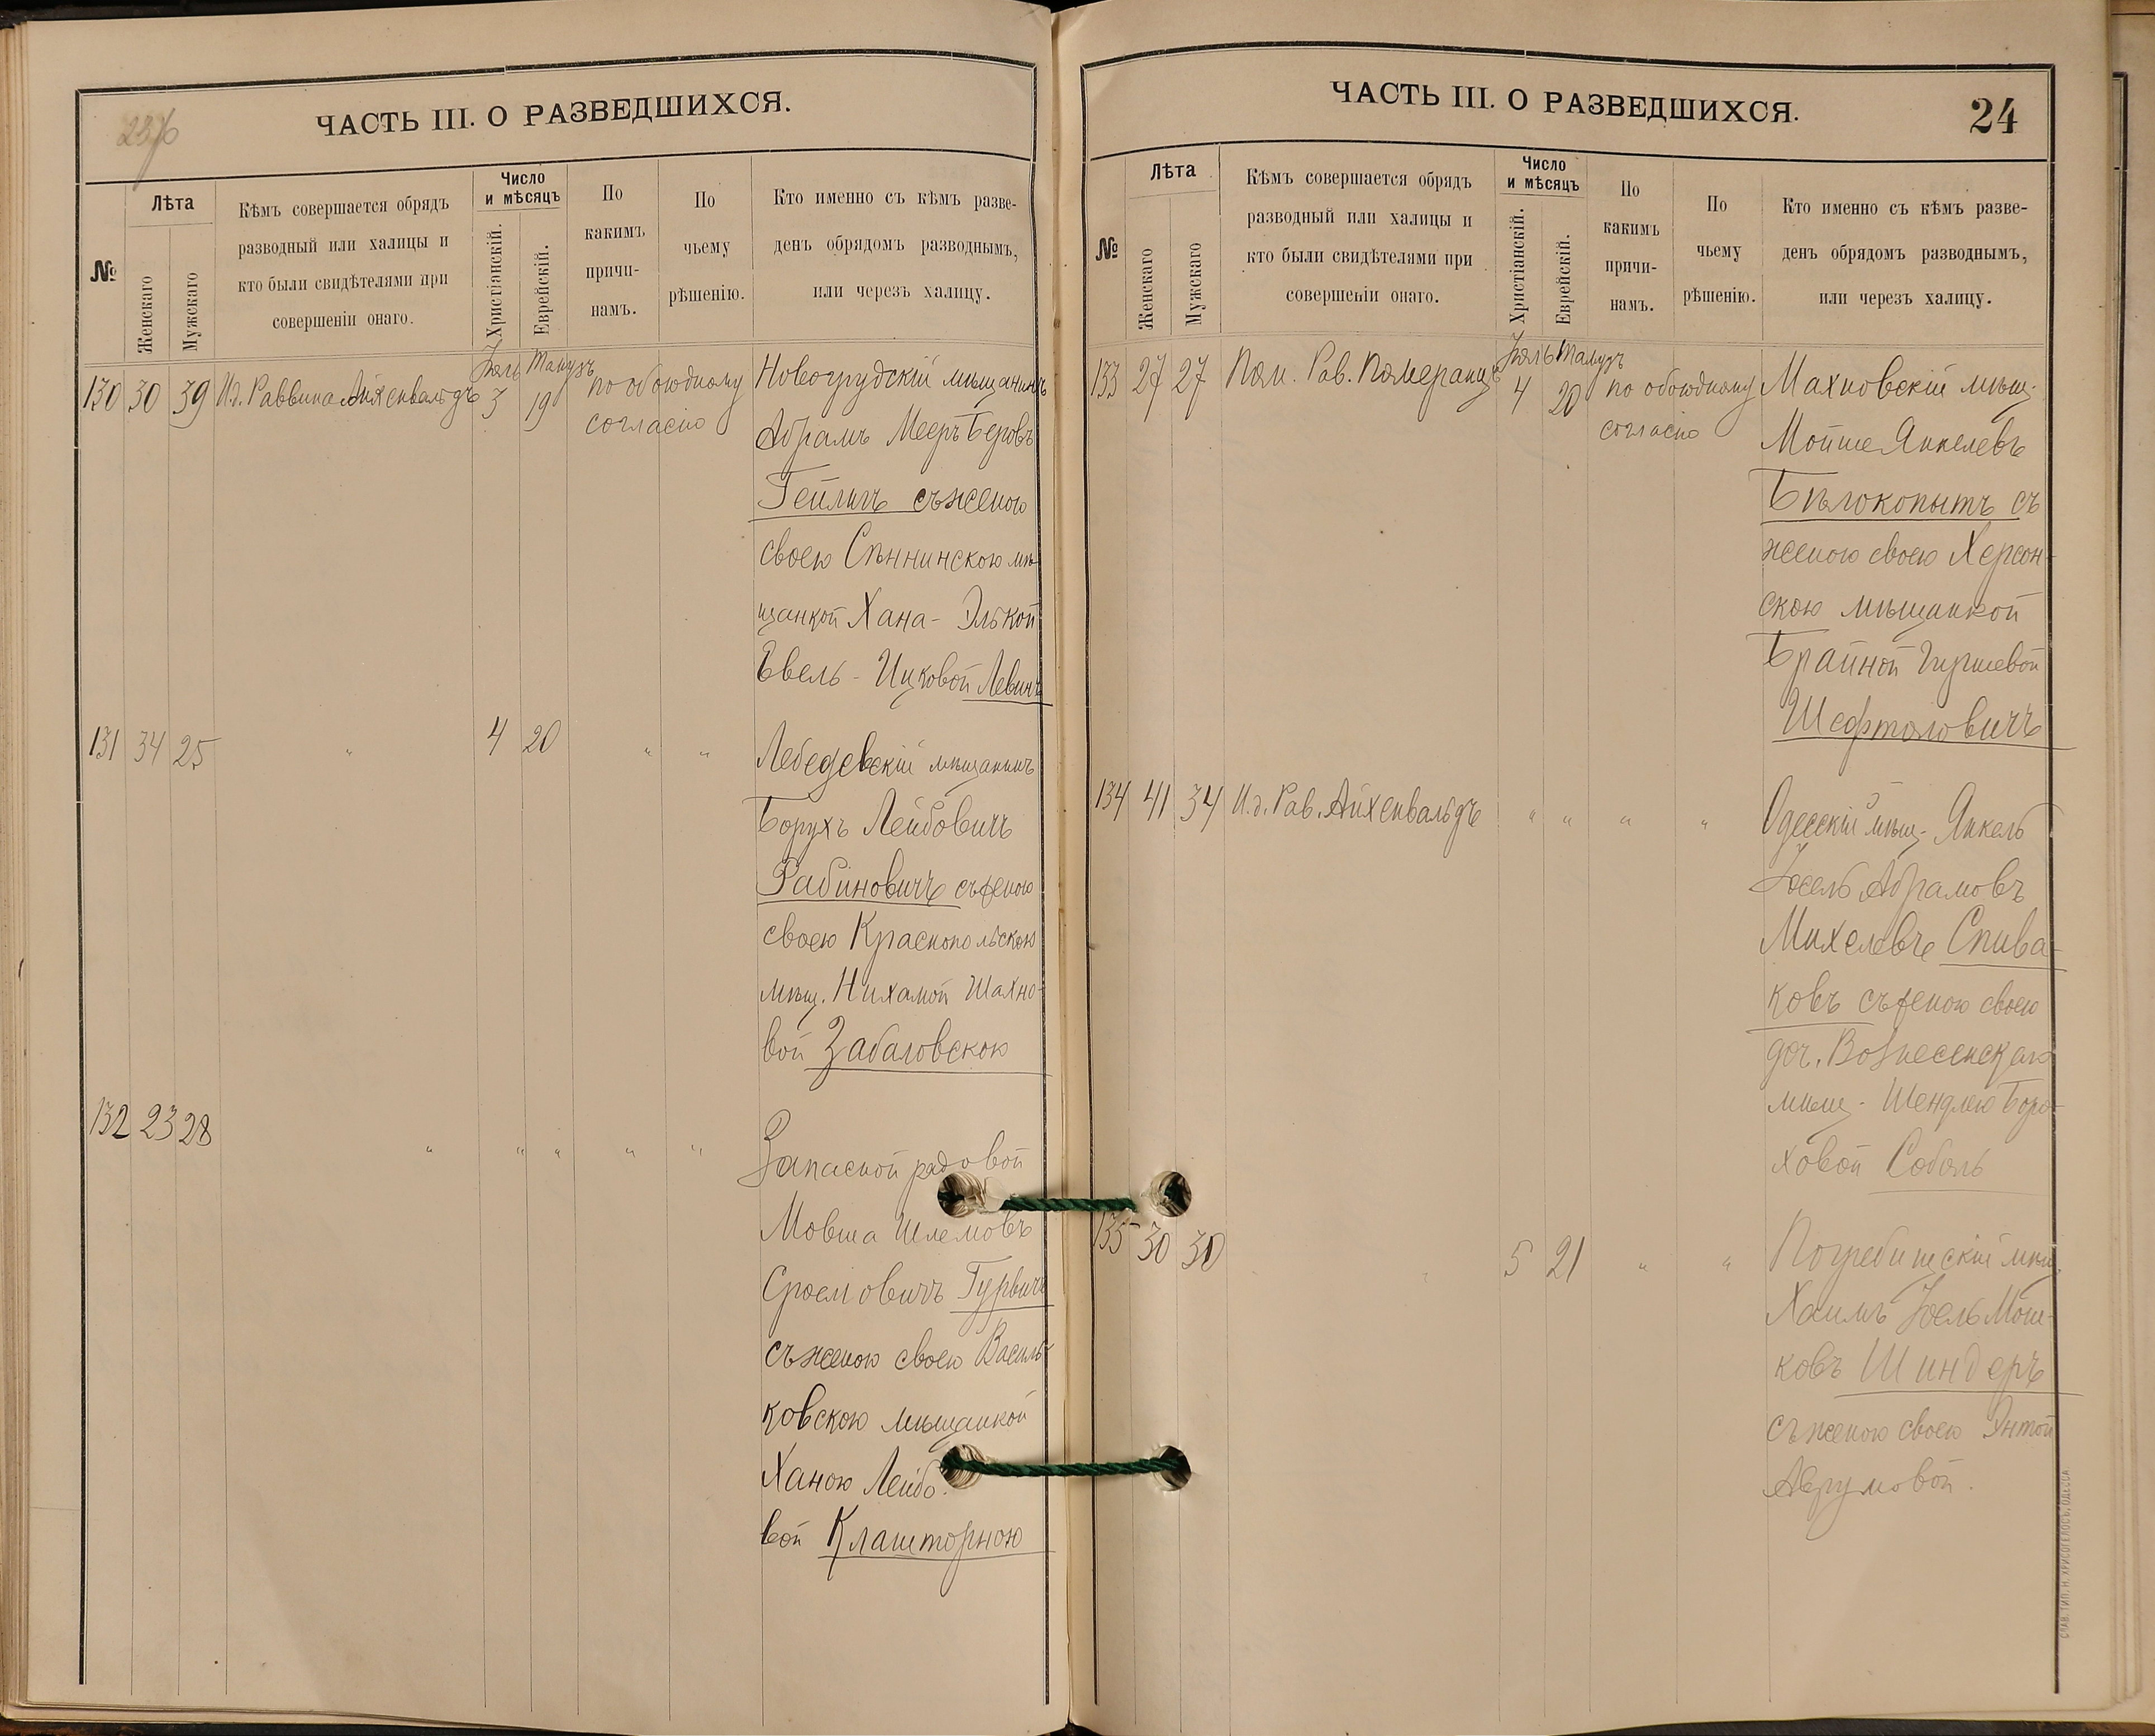 23%
ЧАСТЬ III. О РАЗВЕДШИХСЯ.
№
Лѣта
Женскаго
Мужскаго
Кѣмъ совершается обрядъ
разводный или халицы и
кто были свидѣтелями при
совершеніи онаго.
Число
и мѣсяцъ
Христіанскій.
Еврейскій.
По
какимъ
причи-
намъ.
По
чьему
рѣшенію.
Кто именно съ кѣмъ разве-
денъ обрядомъ разводнымъ,
или черезъ халицу.
130 30 39 И.д. Раввина Айхенвальдъ Іюль 3 Тамузъ 19 по обоюдному
согласію
Новогрудскій мѣщанинъ
Абрамъ Мееръ Беровъ
Гейлигъ съ женою
своею Сѣннинскою мѣ-
щанкой Хана-Элькой
Евель-Ицковой Левинъ
131 34 25 " 4 20 " "
Лебедевскій мѣщанинъ
Борухъ Лейбовичъ
Рабиновичъ съ женою
своею Краснопольскою
мѣщ. Нихамой Шахно-
вой Забаловскою
132 23 28 " " " " "
Запасной рядовой
Мовша Шлемовъ
Сроелговичъ Гурвичъ
съ женою своею Василь-
ковскою мѣщанкой
Ханою Лейбо-
вой Клашторною
ЧАСТЬ III. О РАЗВЕДШИХСЯ.
24
№
Лѣта
Женскаго
Мужскаго
Кѣмъ совершается обрядъ
разводный или халицы и
кто были свидѣтелями при
совершеніи онаго.
Число
и мѣсяцъ
Христіанскій.
Еврейскій.
По
какимъ
причи-
намъ.
По
чьему
рѣшенію.
Кто именно съ кѣмъ разве-
денъ обрядомъ разводнымъ,
или черезъ халицу.
133 27 27 Пом. Рав. Померанцъ Іюль 4 Тамузъ 20 по обоюдному
согласію
Махновскій мѣщ.
Мойше Янкелевъ
Бѣлокопытъ съ
женою своею Херсон-
скою мѣщанкой
Брайной Гиршевой
Шефтеловичъ
134 41 34 И.д. Рав. Айхенвальдъ " " " "
Одесскій мѣщ. Янкель
Іосель Абрамовъ
Михелевъ Спива-
ковъ съ женою своею
доч. Вознесенскаго
мѣщ. Шендлею Боро-
ховой Соболь
135 30 30 " 5 21 " "
Погребищскій мѣщ.
Хаимъ Іоель Мош-
ковъ Шиндеръ
съ женою своею Энтой
Аврумовой.
СЛАВ. ТИП. Н. ХРИСОГЕЛОСЪ, ОДЕССА